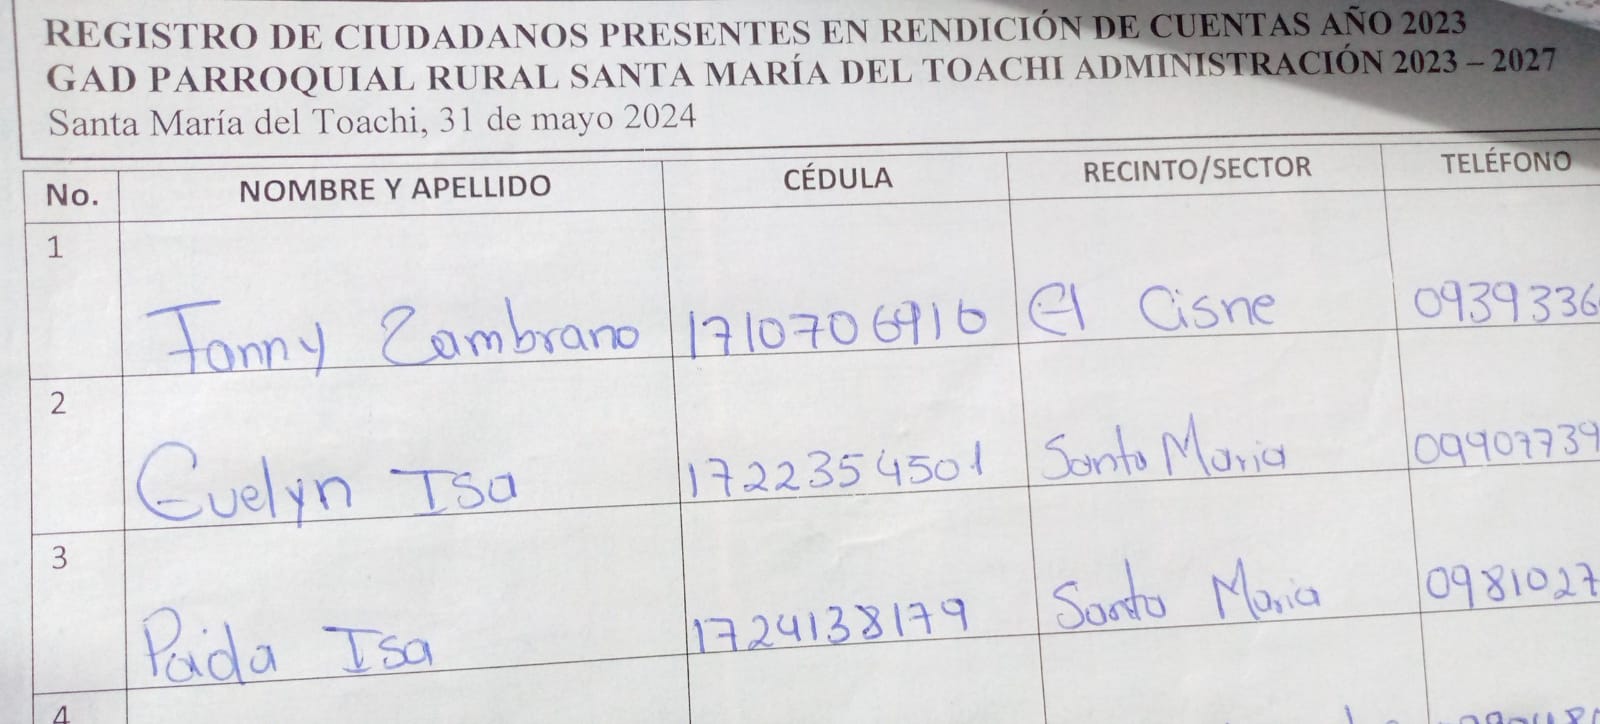 REGISTRO DE CIUDADANOS PRESENTES EN RENDICIÓN DE CUENTAS AÑO 2023
GAD PARROQUIAL RURAL SANTA MARÍA DEL TOACHI ADMINISTRACIÓN 2023 – 2027
Santa María del Toachi, 31 de mayo 2024
No. NOMBRE Y APELLIDO CÉDULA RECINTO/SECTOR TELÉFONO
1 Fanny Zambrano 1710706916 El Cisne 0939336
2 Evelyn Isa 1722354501 Santa Maria 09907739
3 Paida Isa 1724138179 Santa Maria 0981027
4